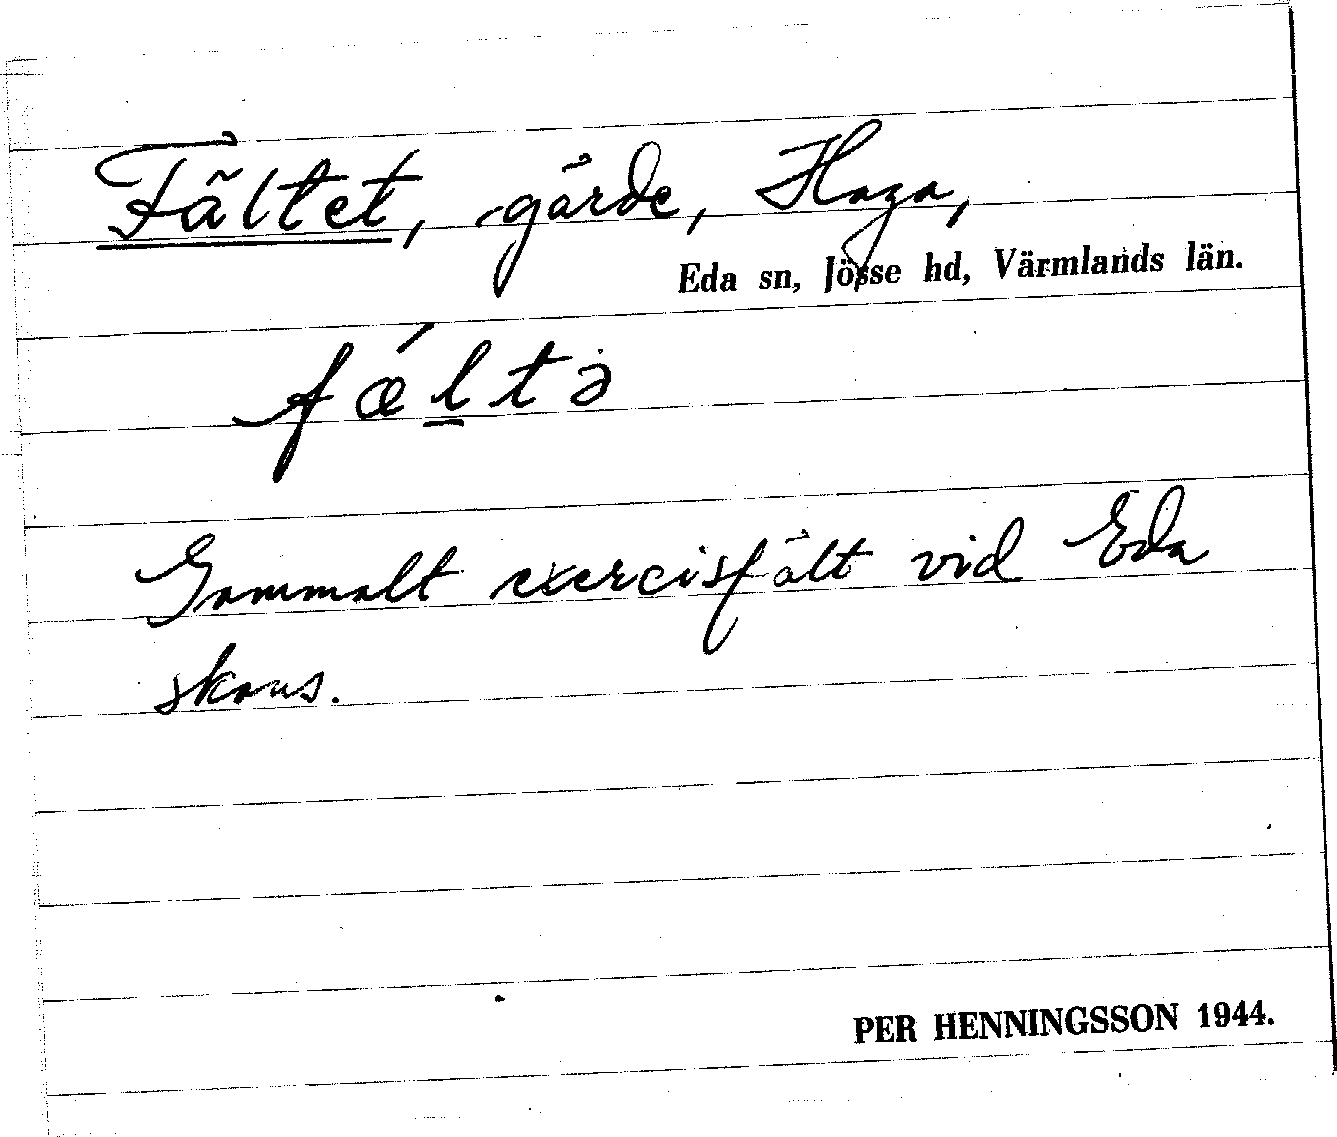 Fältet, gärde, Haga,
Eda sn, Jösse hd, Värmlands län.
fǽl̠tə
Gammalt exercisfält vid Eda
skans.
PER HENNINGSSON 1944.